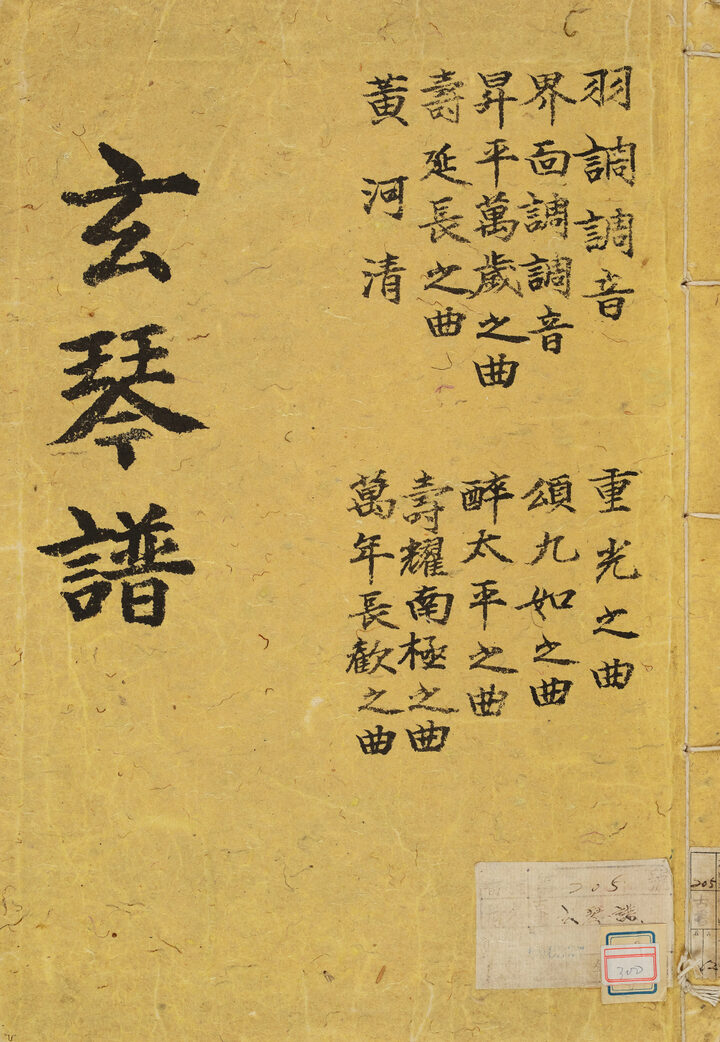 羽調調音
界面調調音
昇平萬歲之曲
壽延長之曲
黃河清
重光之曲
頌九如之曲
醉太平之曲
壽耀南極之曲
萬年長歡之曲
玄琴譜
205
玄琴譜
300
205